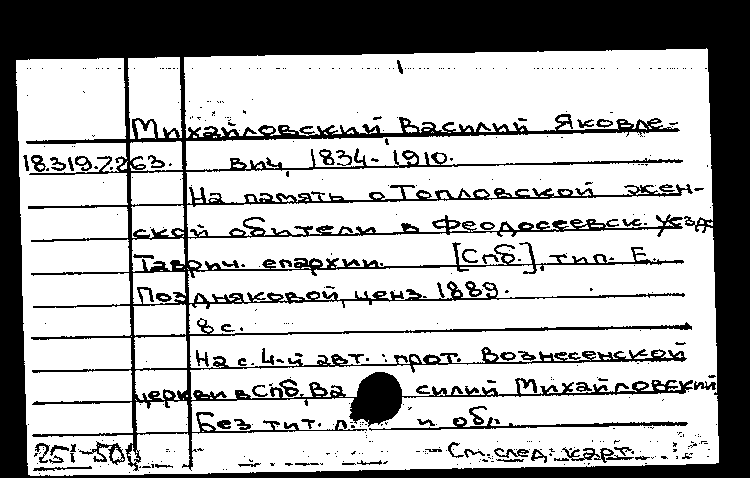 Михайловский, Василий Яковле-
18.319.7.263. вич, 1834-1910.
На память о Топловской жен-
ской обители в Феодосеевск. уезде
Таврич. епархии. [Спб.], тип. Е.
Поздняковой, ценз. 1889.
8 с.
На с. 4-й авт.: прот. Вознесенской
церкви в Спб. Ва силий Михайловский
Без тит. л. и обл.
251-500 См. след. карт.